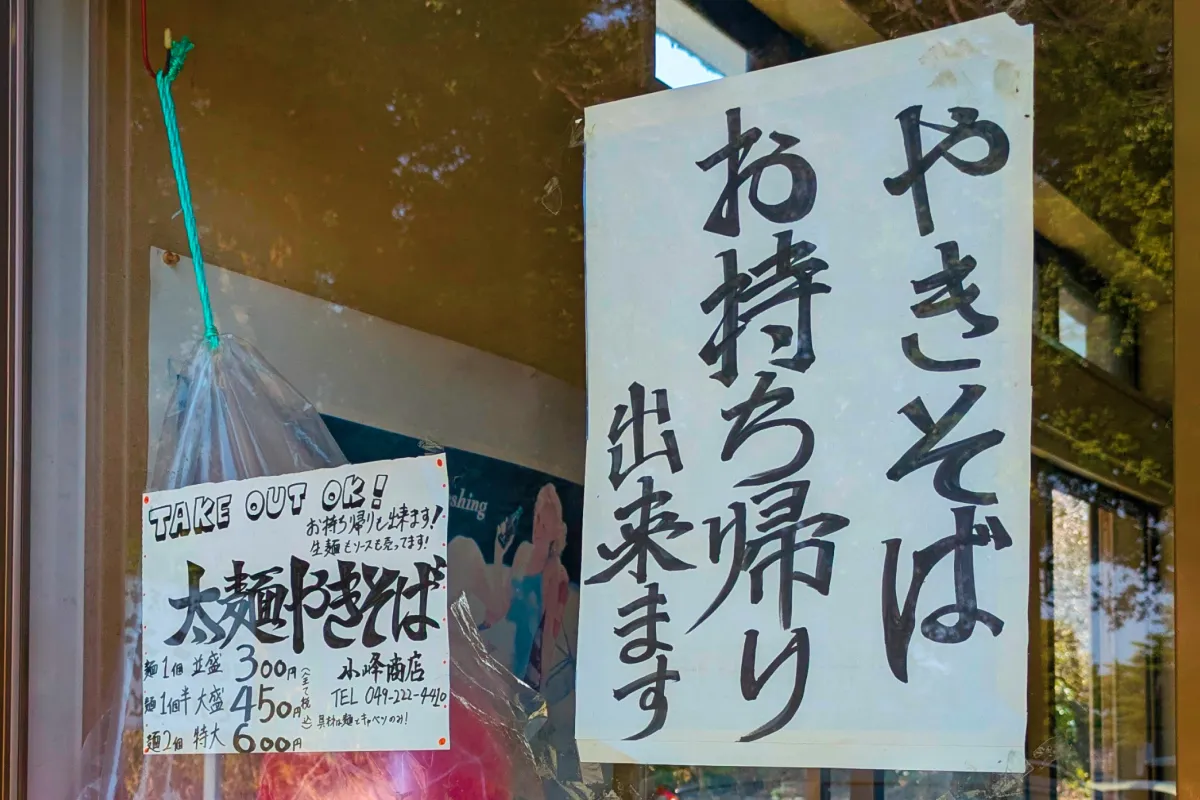 やきそば
お持ち帰り
出来ます
TAKE OUT OK!
お持ち帰りも出来ます!
生麺もソースも売ってます!
太麺やきそば
麺1個 並盛 300円
麺1個半 大盛 450円
麺2個 特大 600円
(全て税込)
小峰商店
TEL 049-222-4410
具材は麺とキャベツのみ!
shing